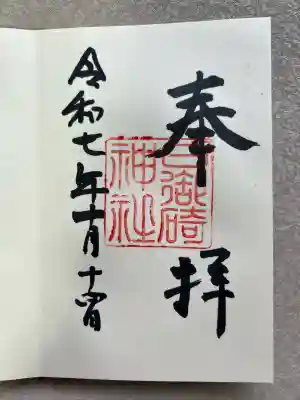 奉拝
日御碕
神社
令和七年十月十四日